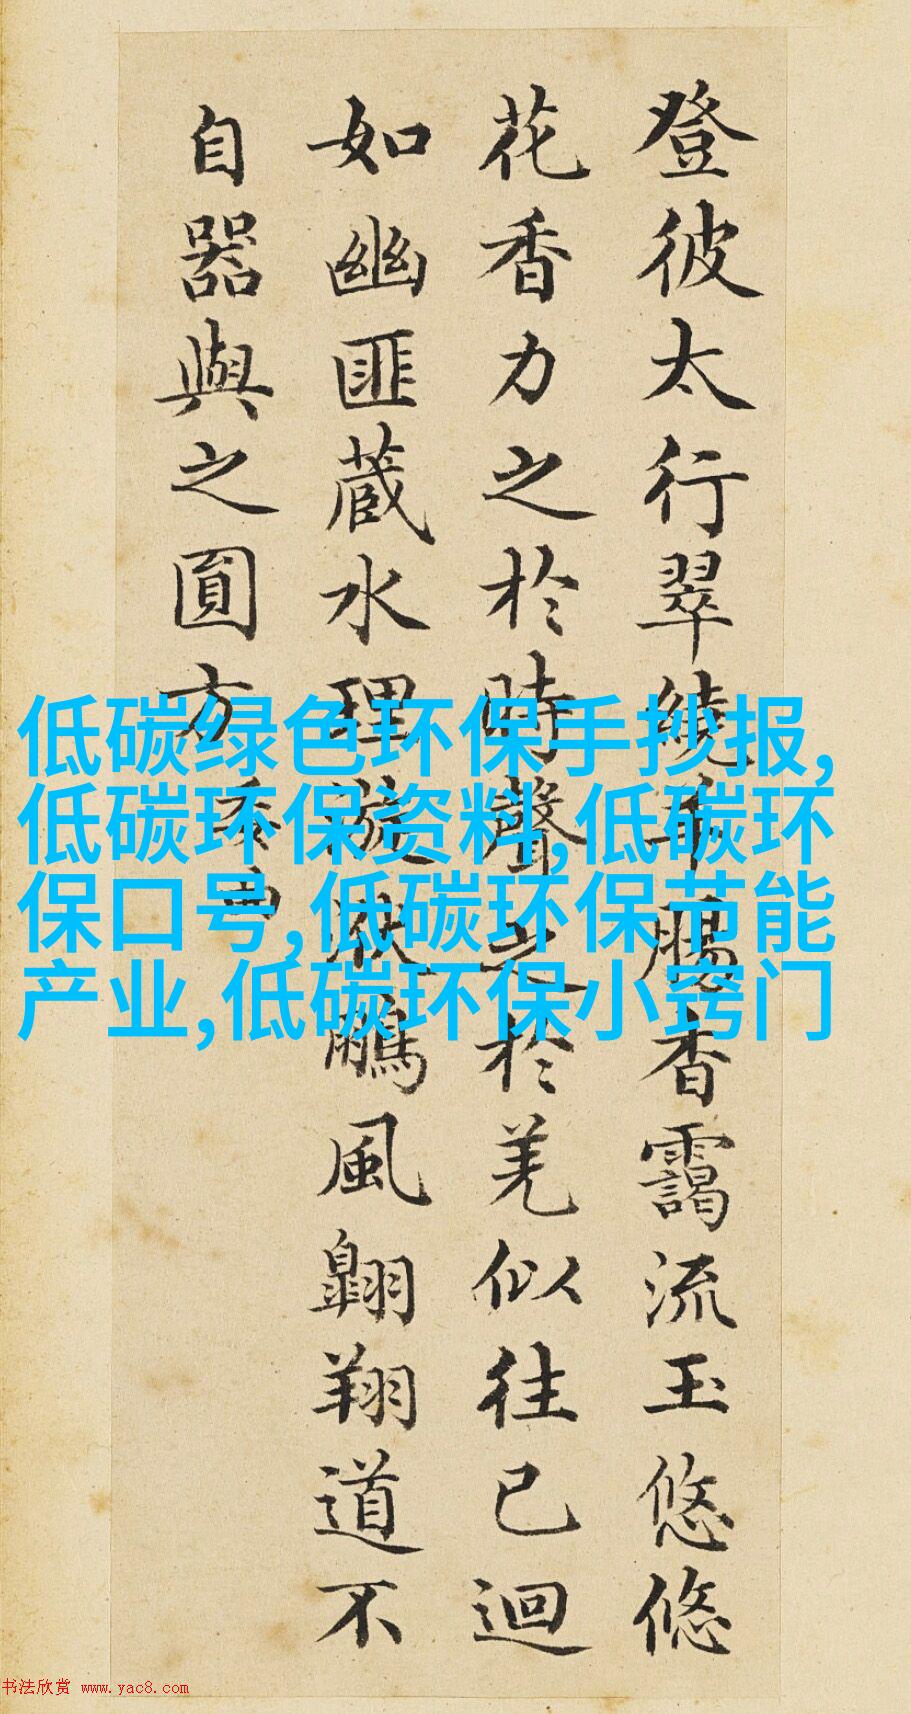 登彼太行翠繞羊腸杳靄流玉悠悠
花香力之於時聲之於羌似往已迴
如幽匪蔵水理漩洑鵬風翺翔道不
自器與之圓方委曲
低碳绿色环保手抄报,
低碳环保资料,低碳环
保口号,低碳环保节能
产业,低碳环保小窍门
书法欣赏 www.yac8.com